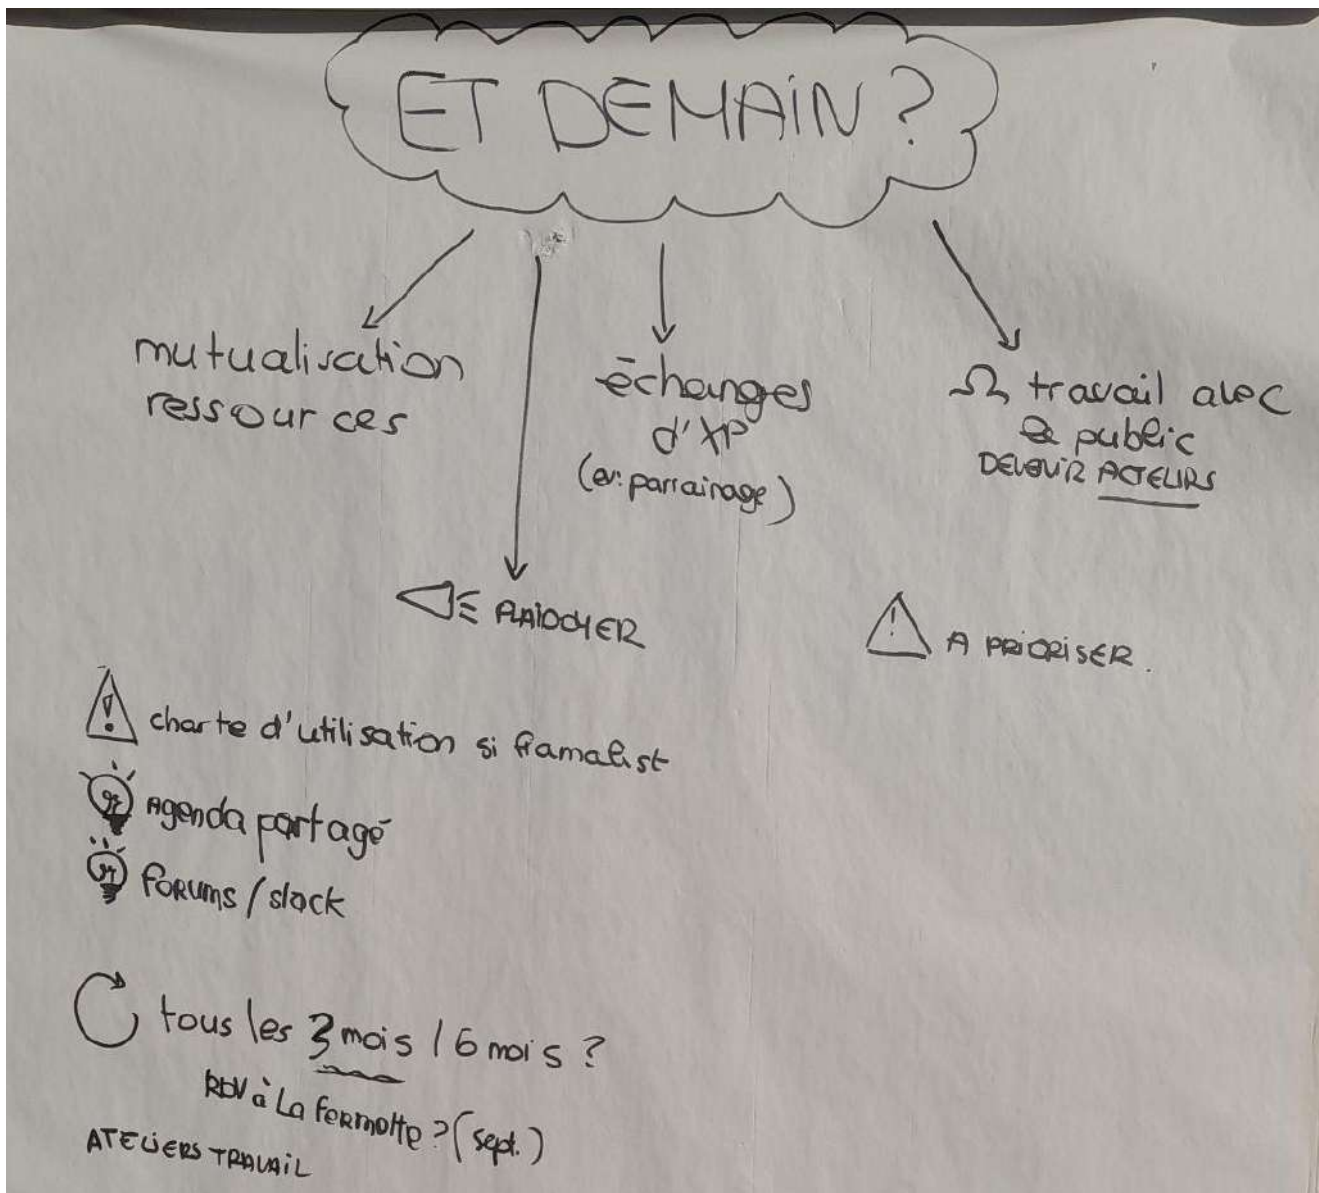 ET DEMAIN ?
mutualisation
ressources
échanges
d'XP
(ex: parrainage)
travail avec
le public
DEVENIR ACTEURS
PLAIDOYER
A PRIORISER.
charte d'utilisation si framalist
Agenda partagé
FORUMS / slack
tous les 3 mois / 6 mois ?
RDV à La Fermotte ? (sept.)
ATELIERS TRAVAIL